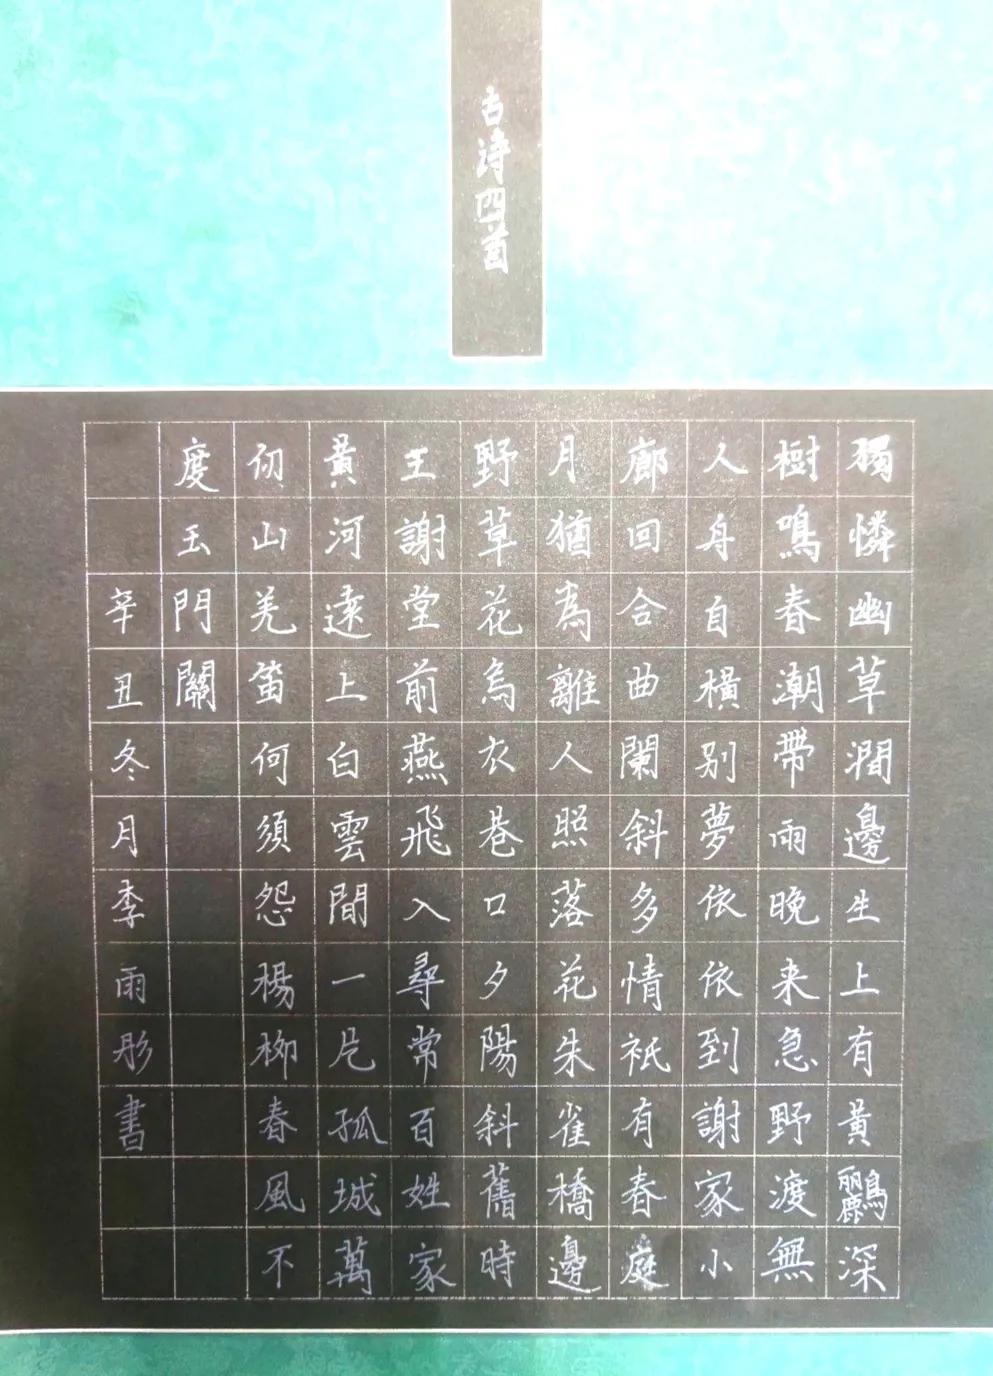 古诗四首
獨憐幽草澗邊生上有黃鸝深
樹鳴春潮帶雨晚来急野渡無
人舟自橫別夢依依到謝家小
廊回合曲闌斜多情衹有春庭
月猶為離人照落花朱雀橋邊
野草花烏衣巷口夕陽斜舊時
王謝堂前燕飛入尋常百姓家
黃河遠上白雲間一片孤城萬
仞山羌笛何須怨楊柳春風不
度玉門關
辛丑冬月李雨彤書